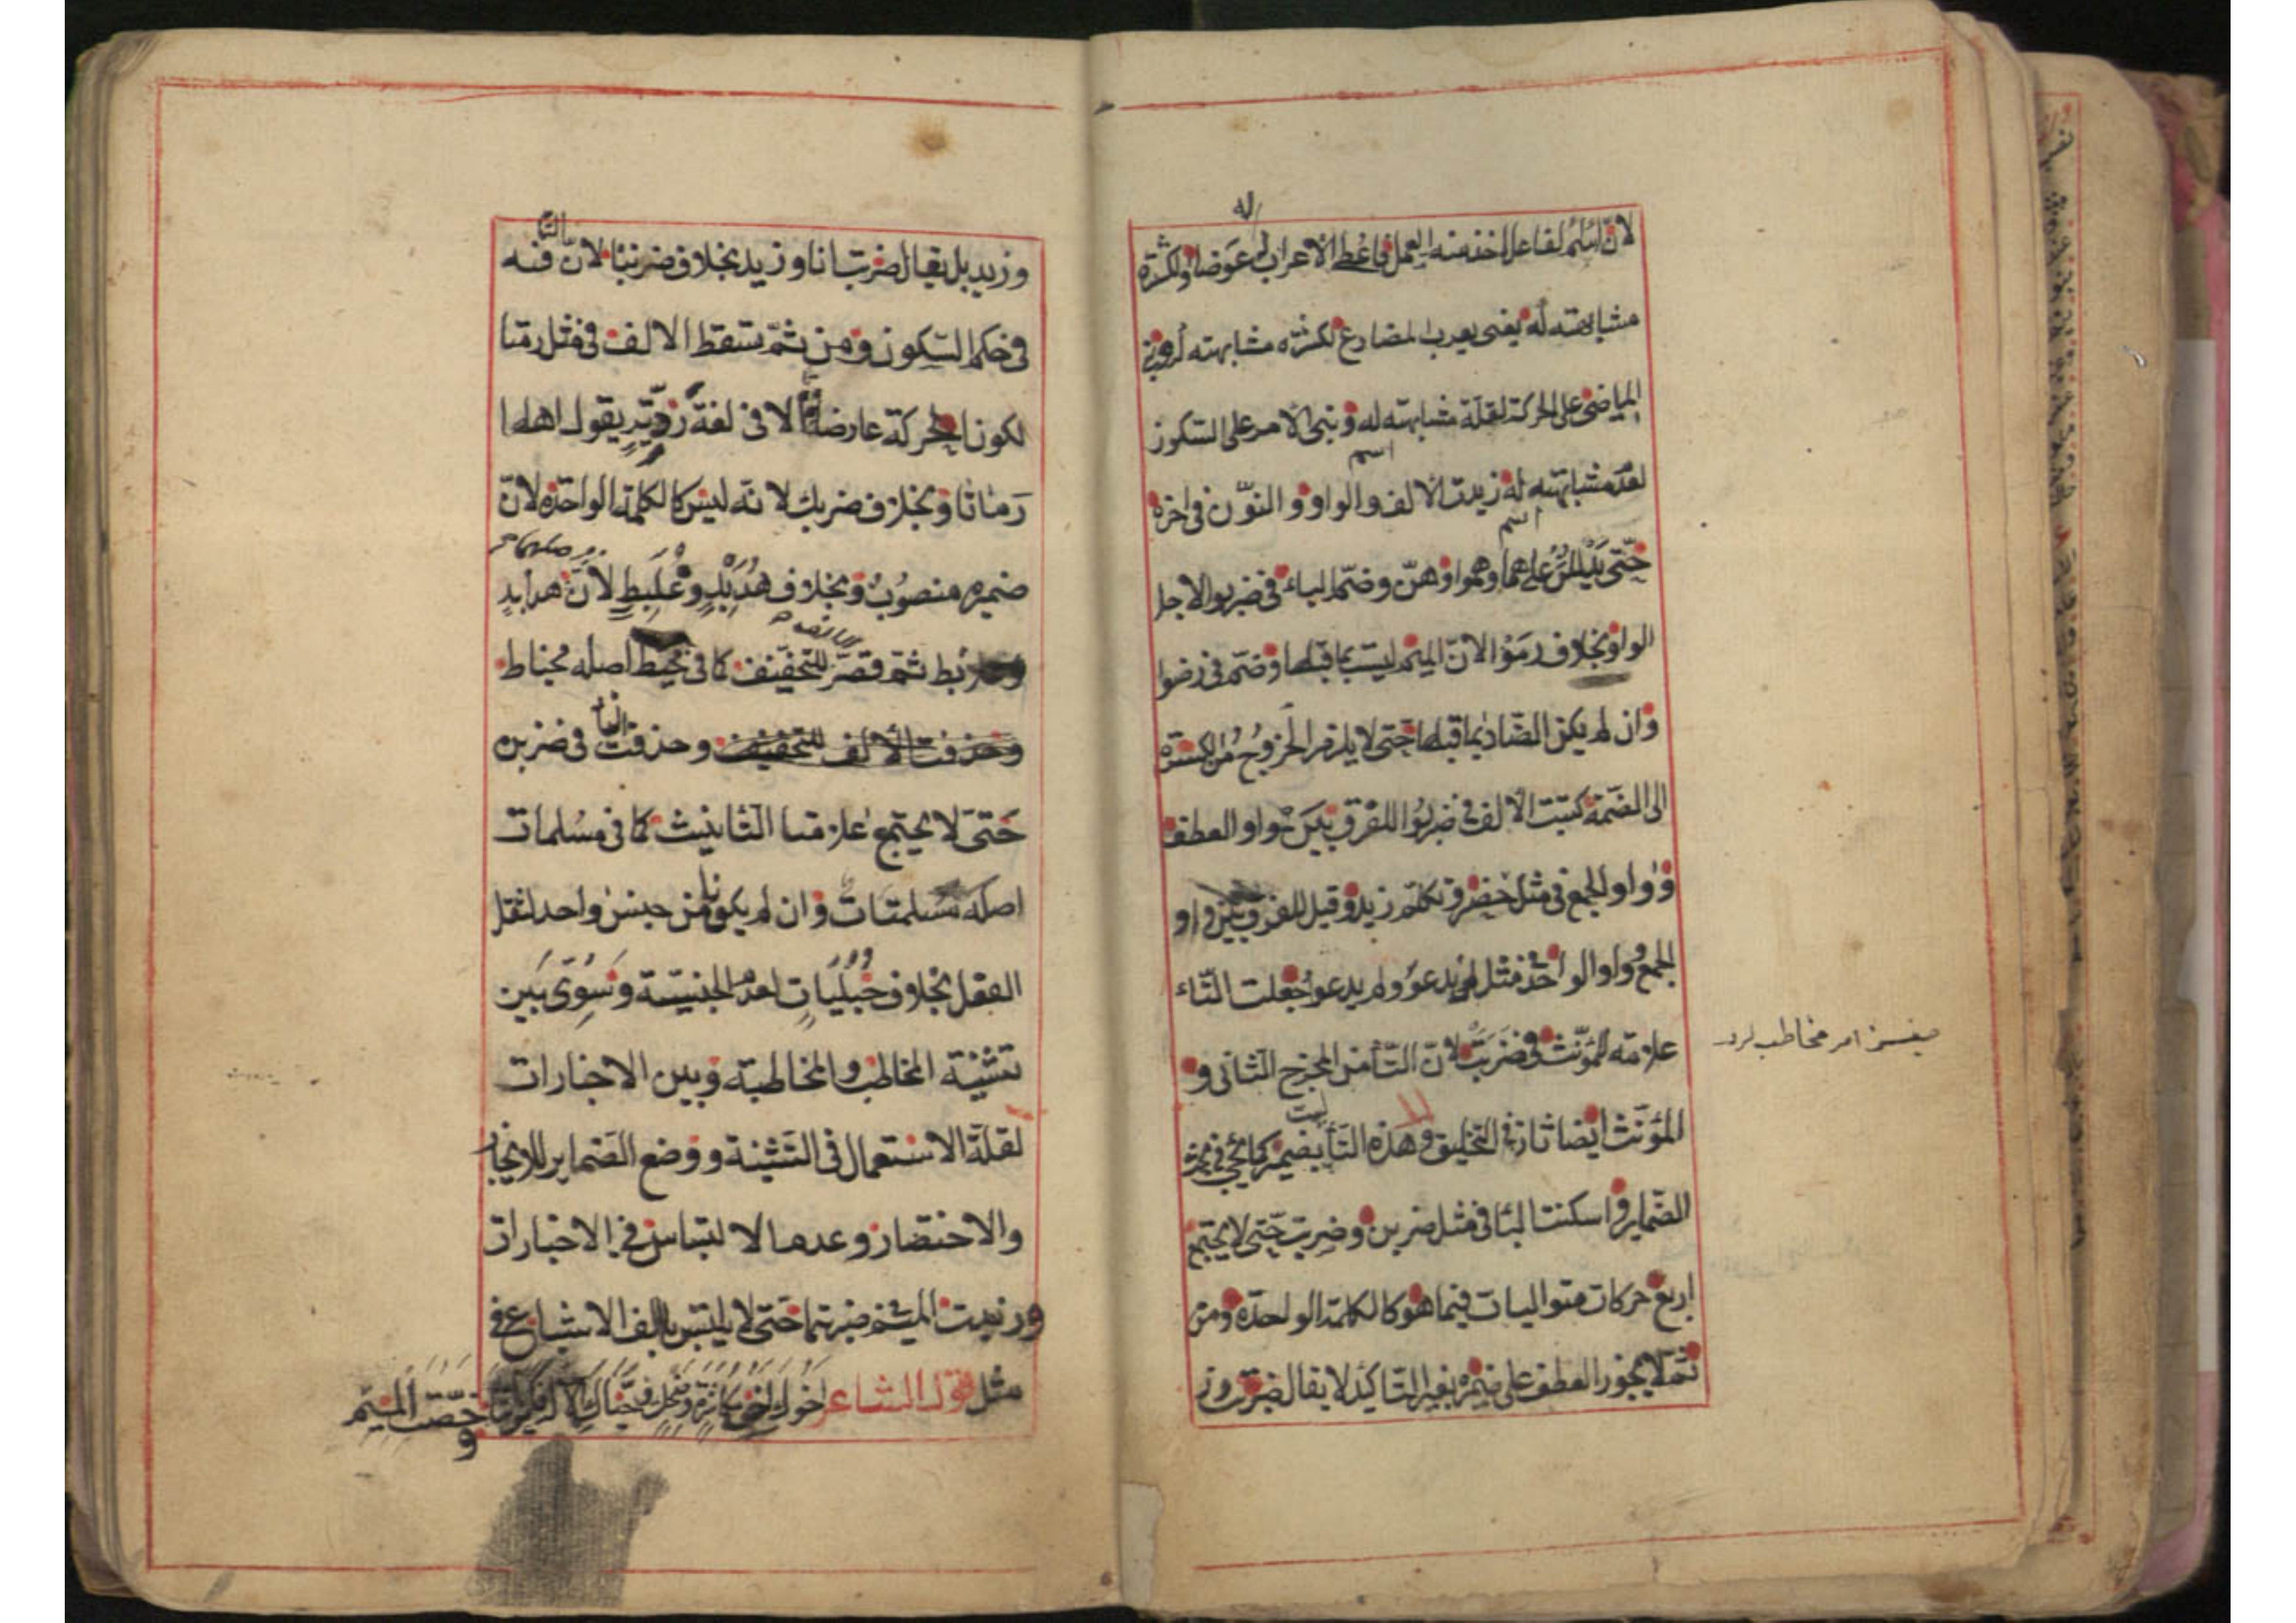 لان اسم الفاعل اخذ منه العمل فاعطى الاعراب له عوضا او لكثرة
مشابهته له يعنى يعرب المضارع لكثرة مشابهته له وبنى
الماضى على الحركة لقلة مشابهته له وبنى الامر على السكون
لعدم مشابهته له زيدت الالف والواو والنون فى اخره
حتى يدللن على هما وهموا وهن وضم الباء فى ضربوا لاجل
الواو بخلاف رموا لان الميم ليست بما قبلها وضم فى رضوا
وان لم يكن الضاد بما قبلها حتى لا يلزم الخروج من الكسرة
الى الضمة كتبت الالف فى ضربوا للفرق بين واو العطف
و واو الجمع فى مثل حضر وتكلم زيد وقيل للفرق بين واو
الجمع و واو الواحد فى مثل لم يدعو ولم يدعوا جعلت التاء
علامة للمؤنث فى ضربت لان التا من المخرج الثانى و
المؤنث ايضا ثان فى التخليق وهذه التا ليست بضمير كما يجئ فى
الضماير واسكنت البا فى مثل ضربن وضربت حتى لا يجتمع
اربع حركات متواليات فيما هو كالكلمة الواحدة ومن
ثم لا يجوز العطف على ضميره بغير التاكيد لا يقال ضربت وز
صيغه امر مخاطب
وزيد بل يقال ضربت انا وزيد بخلاف ضربتا لان التا فيه
فى حكم السكون ومن ثم تسقط الالف فى مثل رمتا
لكون الحركة عارضة الا فى لغة ردية يقول اهلها
رماتا وبخلاف ضربك لانه ليس كالكلمة الواحدة لان
ضميره منصوب وبخلاف هدبد وعلبط لان هدابد
وعلابط ثم قصر للتخفيف كما فى مخيط اصله مخياط
وحذفت الالف للتخفيف وحذفت التا فى ضربن
حتى لا يجتمع علامتا التانيث كما فى مسلمات
اصله مسلمتات وان لم يكونا من جنس واحد لثقل
الفعل بخلاف حبليات لعدم الجنسية وسوى بين
تثنية المخاطب والمخاطبة وبين الاخبارات
لقلة الاستعمال فى التثنية ووضع الضماير للايجاز
والاختصار وعدم الالتباس فى الاخبارات
وزيدت الميم فى ضربتما حتى لا يلتبس بالف الاشباع فى
مثل قول الشاعر اخوك اخو مكاشرة وضحك وحياك الاله فكيف انتا وخصت الميم